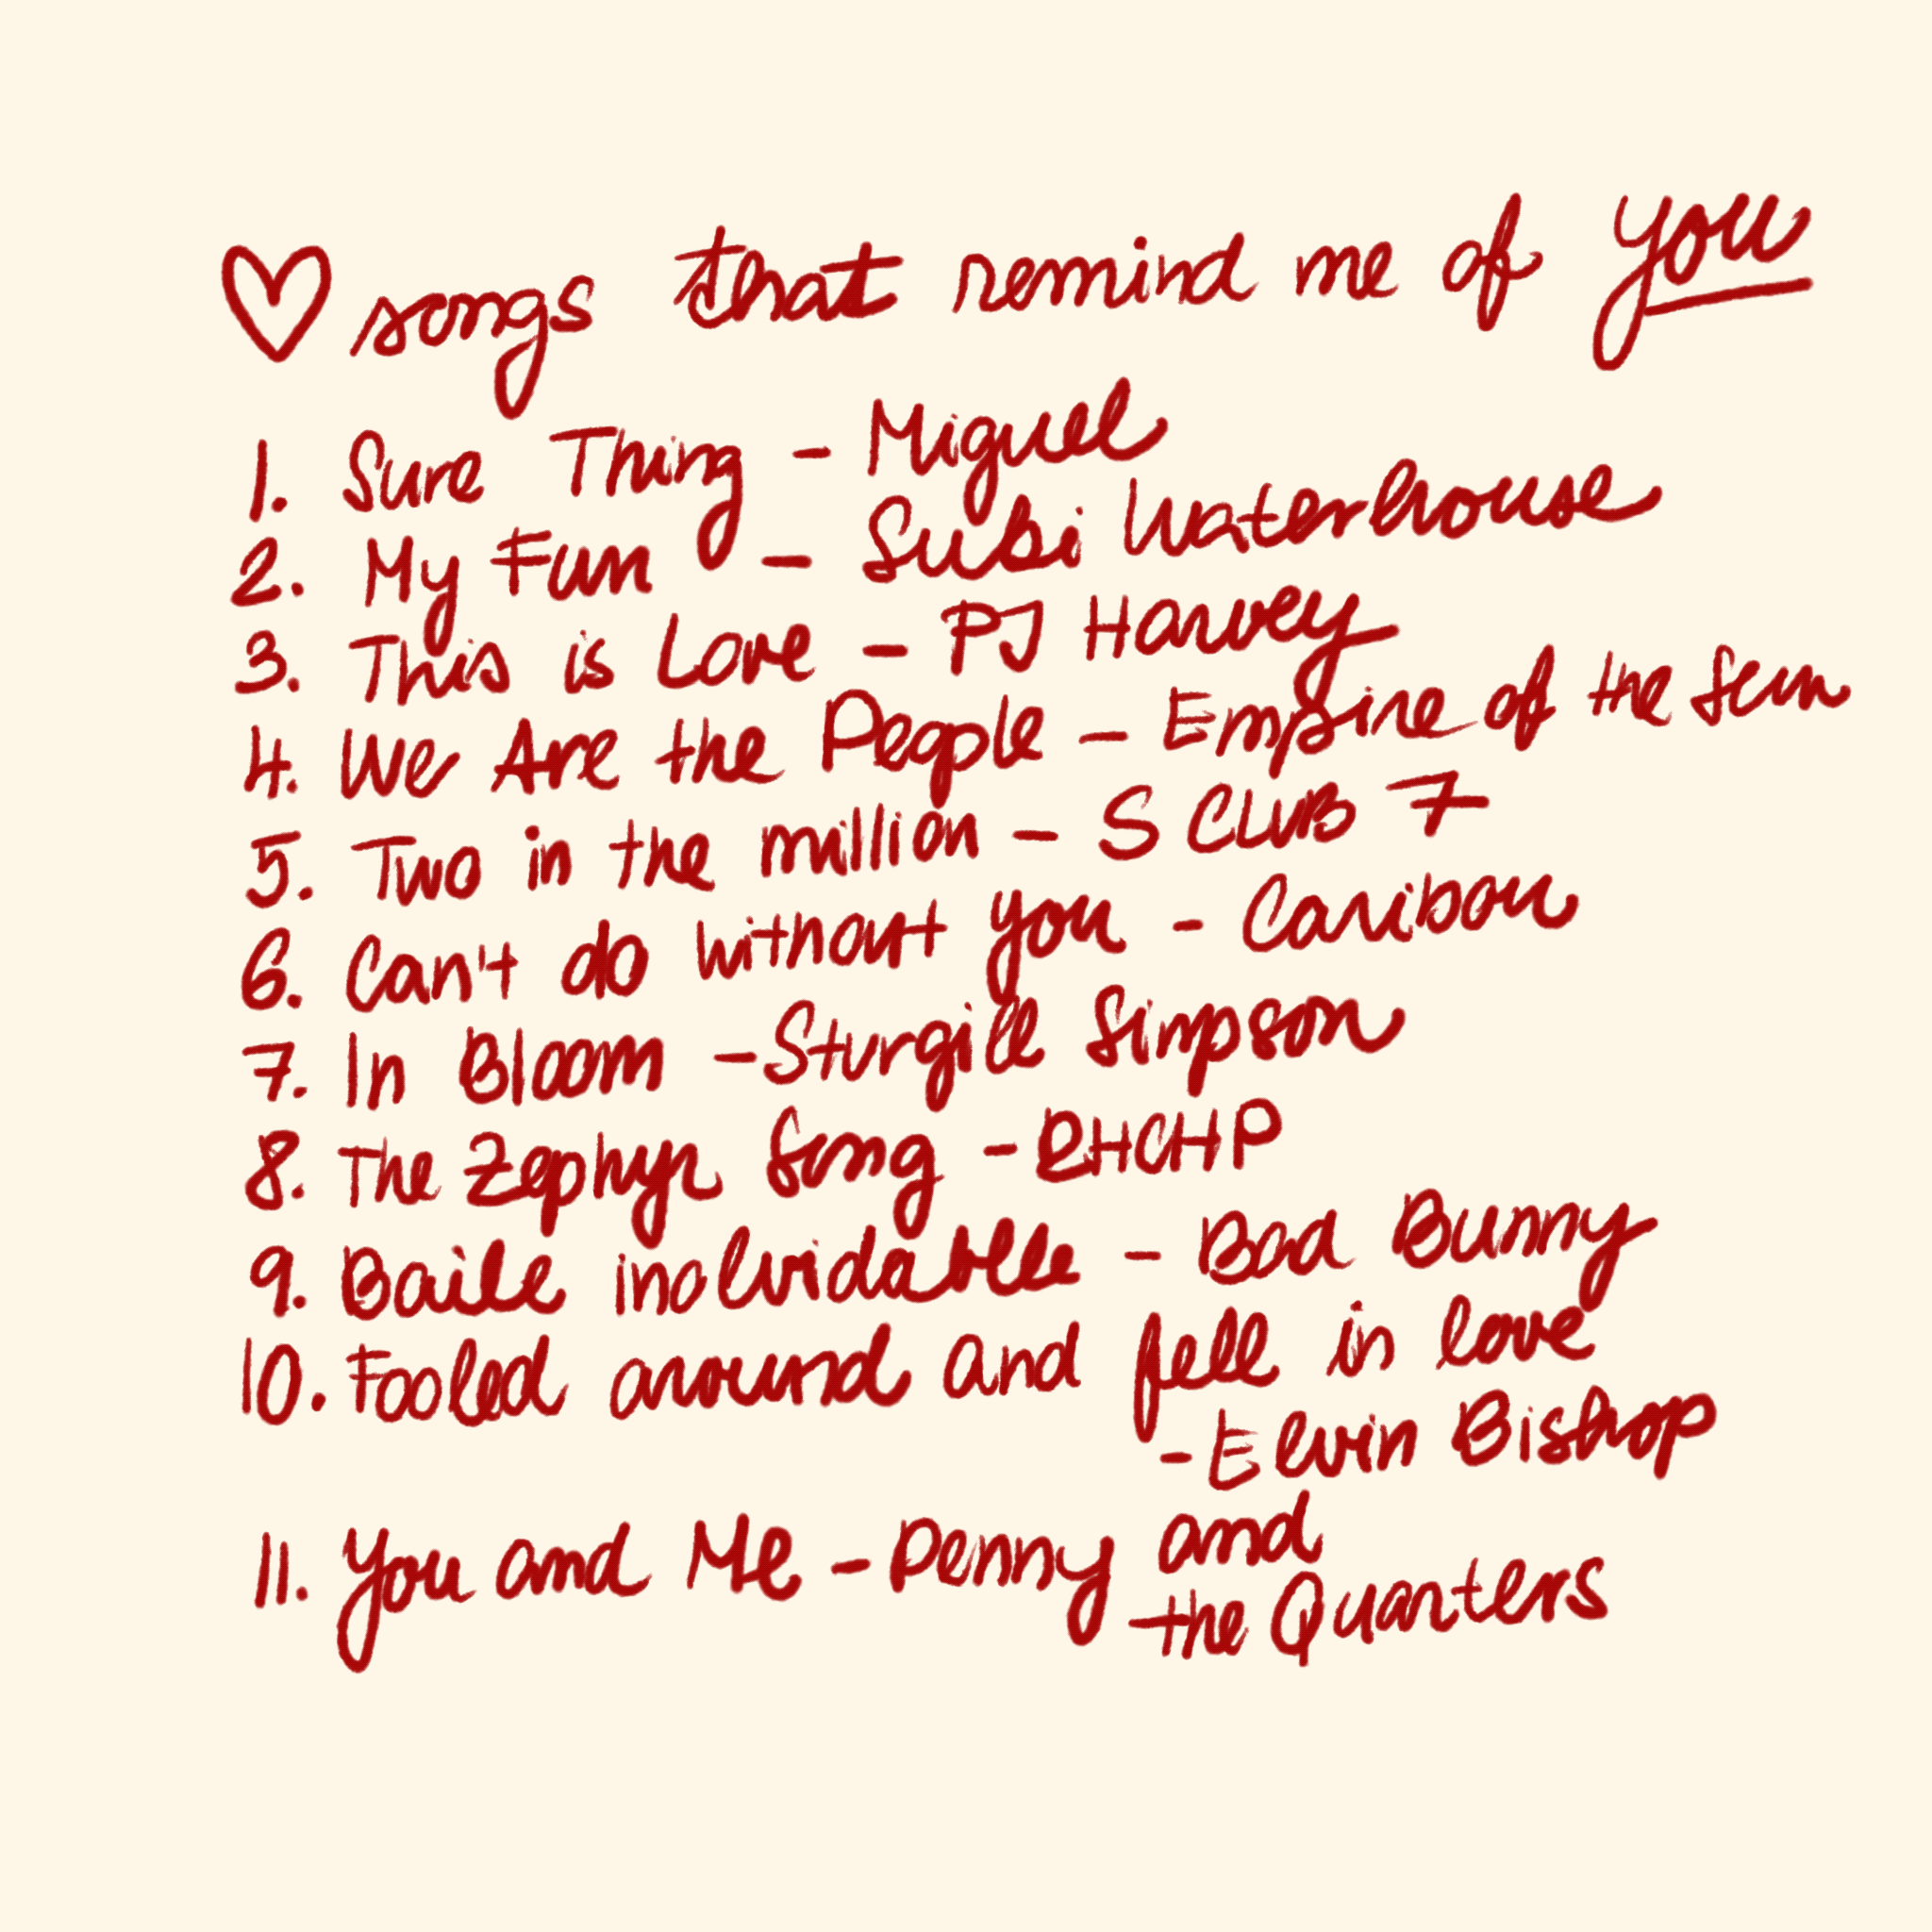 songs that remind me of you
1. Sure Thing - Miguel
2. My Fun - Suki Waterhouse
3. This is Love - PJ Harvey
4. We Are the People - Empire of the Sun
5. Two in the million - S CLUB 7
6. Can't do without you - Caribou
7. In Bloom - Sturgill Simpson
8. The Zephyr Song - RHCHP
9. Baile inolvidable - Bad Bunny
10. Fooled around and fell in love
- Elvin Bishop
11. You and Me - Penny and
the Quarters